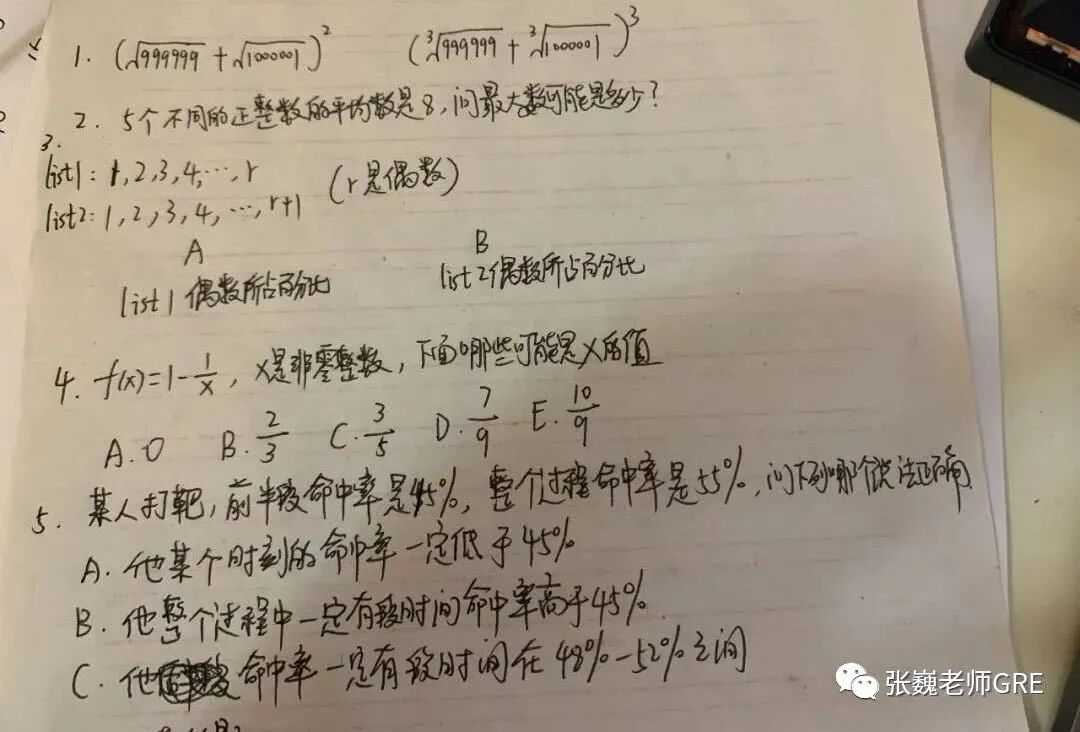 1. (√999999 + √1000001)² (∛999999 + ∛1000001)³
2. 5个不同的正整数的平均数是8,问最大数可能是多少?
3.
list1: 1,2,3,4,…,r (r是偶数)
list2: 1,2,3,4,…,r+1
A B
list1偶数所占百分比 list2偶数所占百分比
4. f(x)=1-1/x, x是非零整数,下面哪些可能是x的值
A.0 B.2/3 C.3/5 D.7/9 E.10/9
5. 某人打靶,前半段命中率是45%,整个过程命中率是55%,问下列哪个说法正确
A. 他某个时刻的命中率一定低于45%
B. 他整个过程中一定有段时间命中率高于45%
C. 他命中率一定有段时间在48%-52%之间
张巍老师GRE